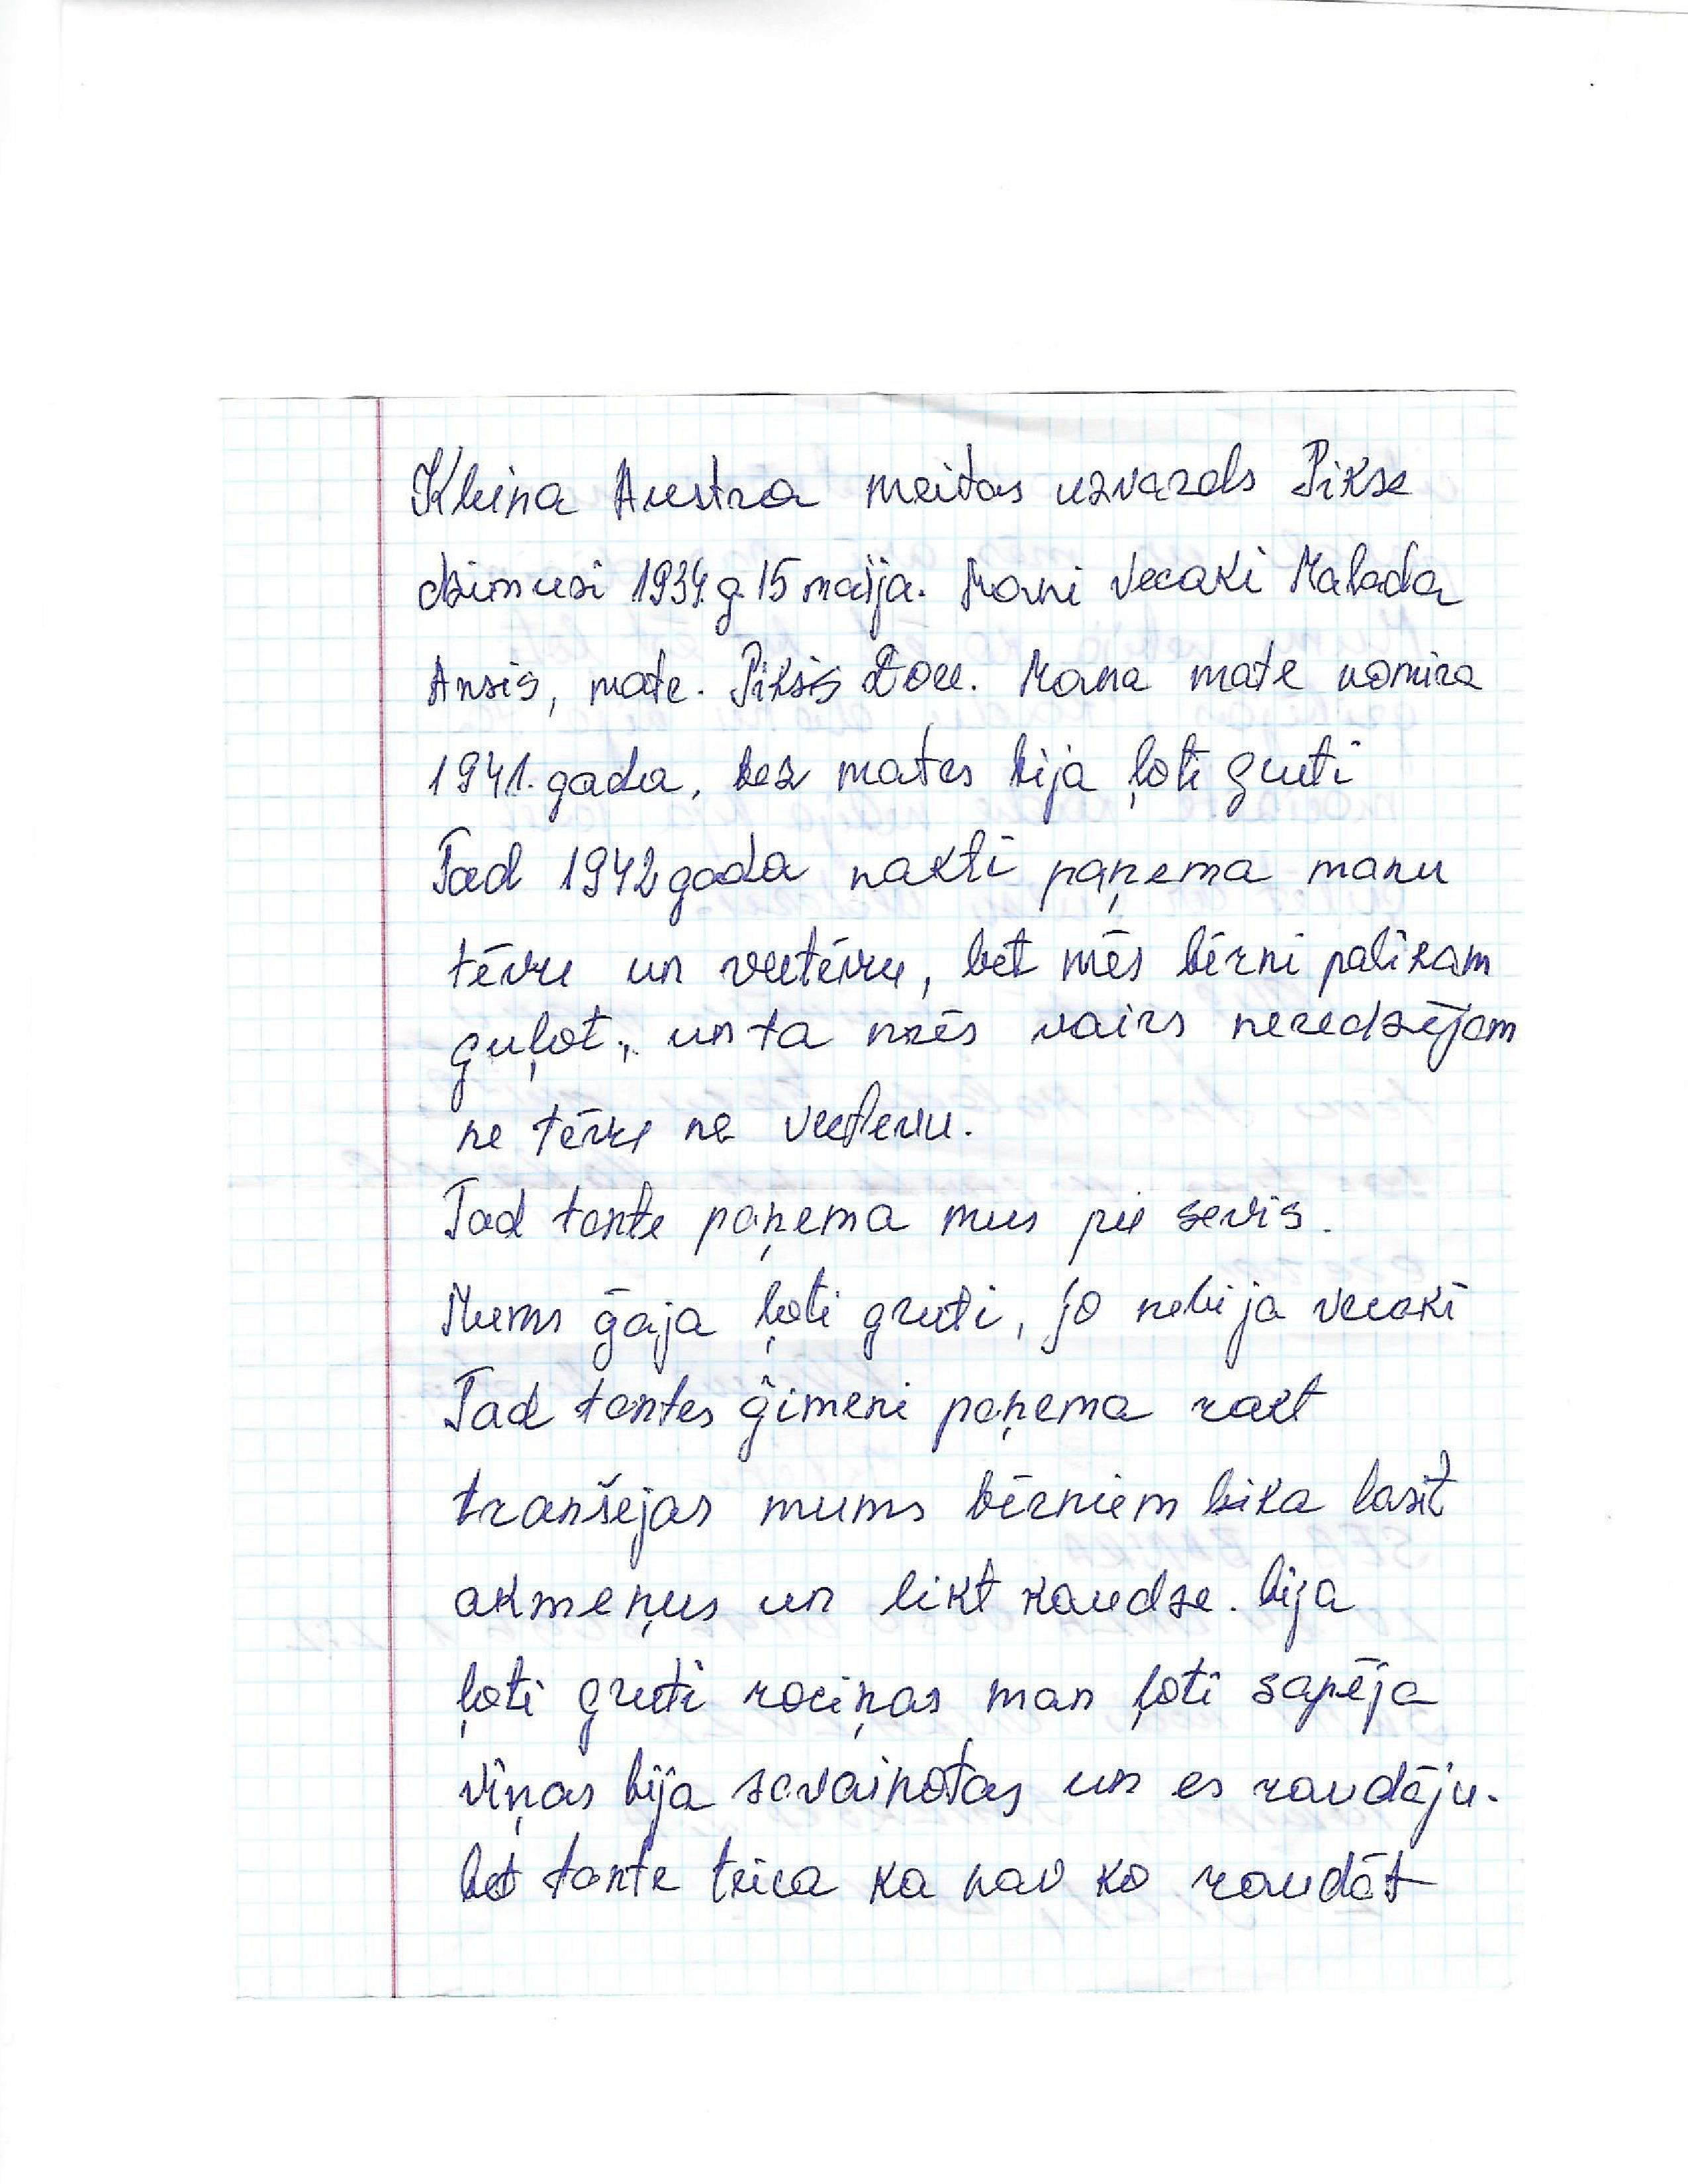 Kleina Austra meitas uzvards Pikse
dzimusi 1934.g 15 maija. Mani vecaki Malada
Ansis, mate. Piksis Dou. Mana mate nomira
1941. gada, bez mates bija ļoti gruti
Tad 1942 gada nakti paņema manu
tēvu un vectēvu, bet mēs bērni palikam
guļot, un ta mēs vairs neredzējam
ne tēvu ne vectevu.
Tad tante paņema mus pie sevis.
Mums gāja ļoti gruti, jo nebija vecaki
Tad tantes ģimeni paņema rakt
tranšejas mums bērniem lika lasit
akmeņus un likt kaudze. bija
ļoti gruti rociņas man ļoti sapēja
viņas bija savainotas un es raudāju.
bet tante teica ka nav ko raudāt